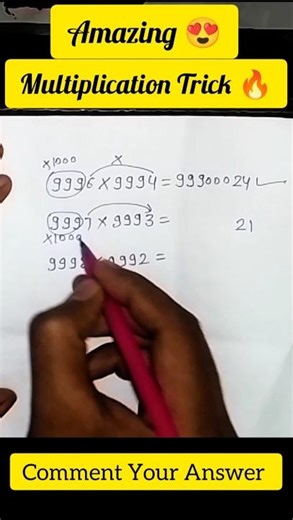 Amazing 😍
Multiplication Trick 🔥
×1000 ×
9996 × 9994 = 99900024
9997 × 9993 = 21
×1000
9998 × 9992 =
Comment Your Answer